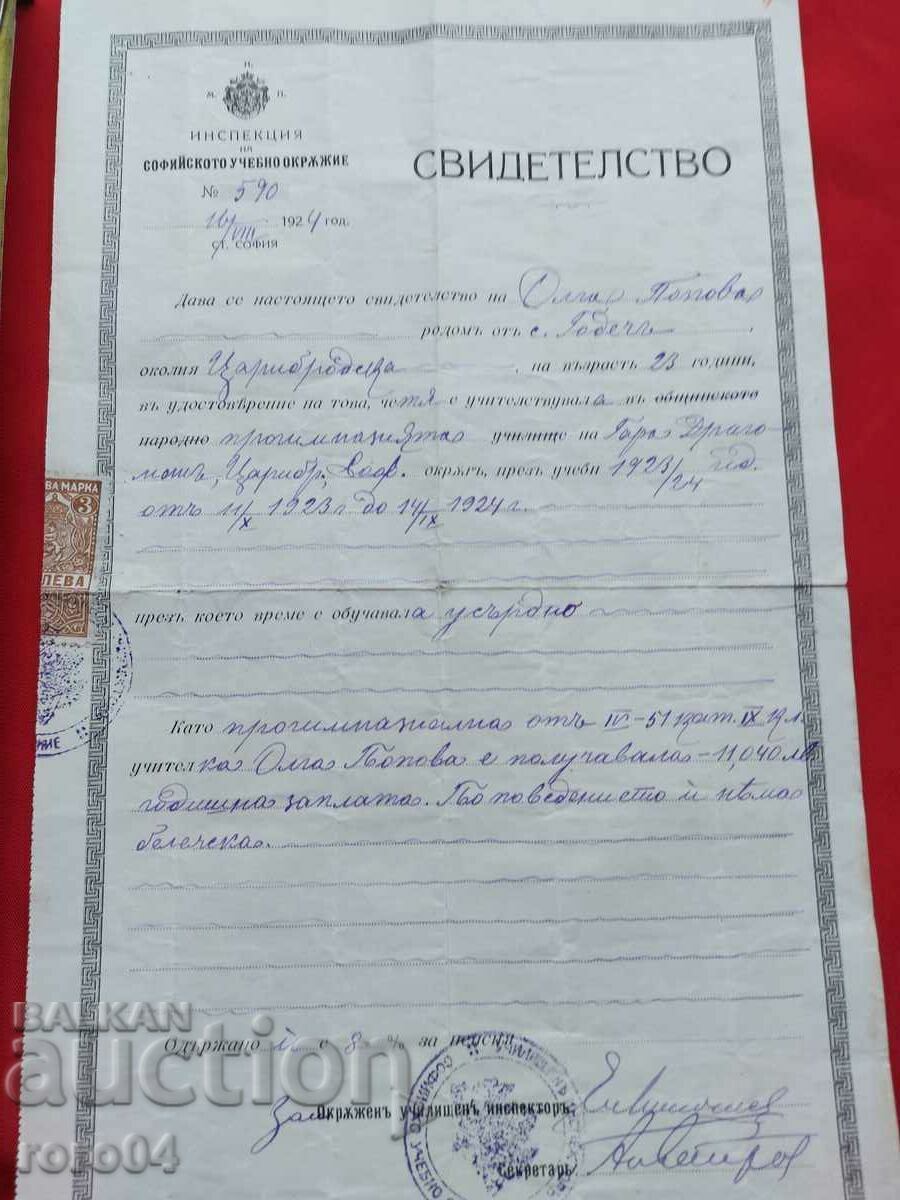 М. Н. П.
ИНСПЕКЦИЯ
НА
СОФИЙСКОТО УЧЕБНО ОКРѪЖИЕ
№ 590
16/VIII 1924 год.
гр. СОФИЯ
СВИДЕТЕЛСТВО
Дава се настоящето свидетелство на Олга Попова
родомъ отъ с. Годечъ
околия Царибродска на възрасть 23 години,
въ удостовѣрение на това, че тя е учителствувала въ общинското
народно прогимназията училище на Гара Драго-
манъ, Царибр. окрѫгъ, презъ учебн 1923/24 год.
отъ 11/X 1923 г до 14/IX 1924 г.
презъ което време е обучавала усърдно
Като прогимназиална отъ IV-51 IX кл.
учителка Олга Попова е получавала 11,040 лв
годишна заплата. По поведението ѝ нѣма
бележка.
Одържано ѝ е 8 % за пенсия
Окрѫженъ училищенъ инспекторъ:
Секретарь:
ВА МАРКА
3
ЛЕВА
BALKAN
auction
roro04